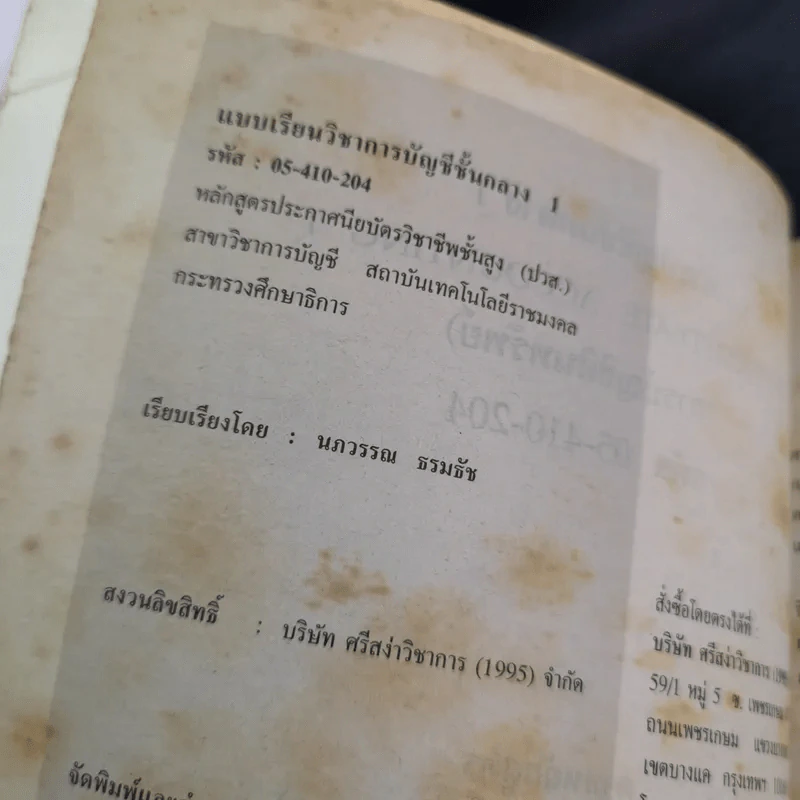 แบบเรียนวิชาการบัญชีชั้นกลาง 1
รหัส : 05-410-204
หลักสูตรประกาศนียบัตรวิชาชีพชั้นสูง (ปวส.)
สาขาวิชาการบัญชี สถาบันเทคโนโลยีราชมงคล
กระทรวงศึกษาธิการ
เรียบเรียงโดย : นภวรรณ ธรมธัช
สงวนลิขสิทธิ์ : บริษัท ศรีสง่าวิชาการ (1995) จำกัด
จัดพิมพ์และ
สั่งซื้อโดยตรงได้ที่
บริษัท ศรีสง่าวิชาการ
59/1 หมู่ 5 ซ. เพชรเกษม
ถนนเพชรเกษม
เขตบางแค กรุงเทพฯ